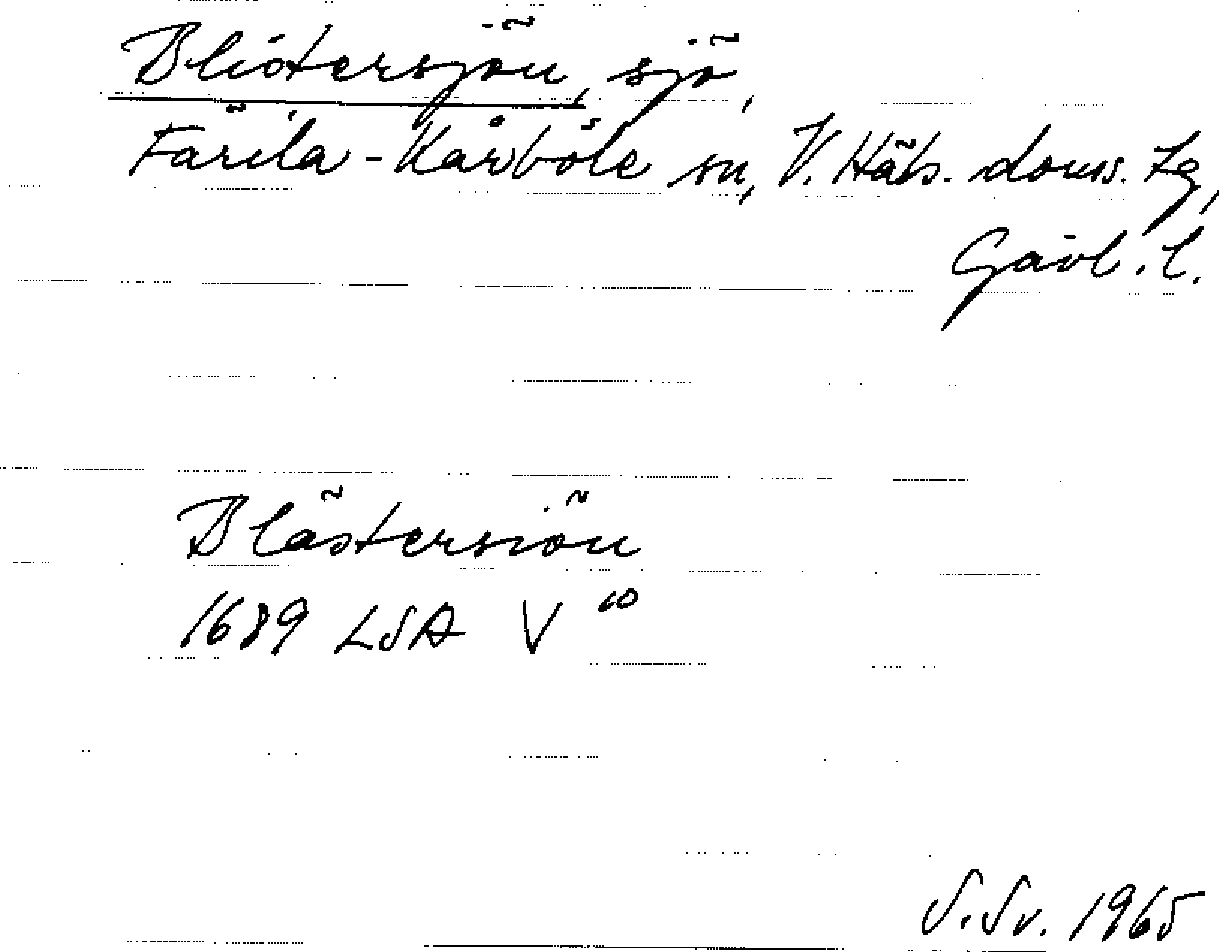 Blistersjön, sjö,
Färila-Kårböle sn, V. Häls. doms. Lg,
Gävl. l.
Blästersiön
1689 LSA V 10
S. Sv. 1965